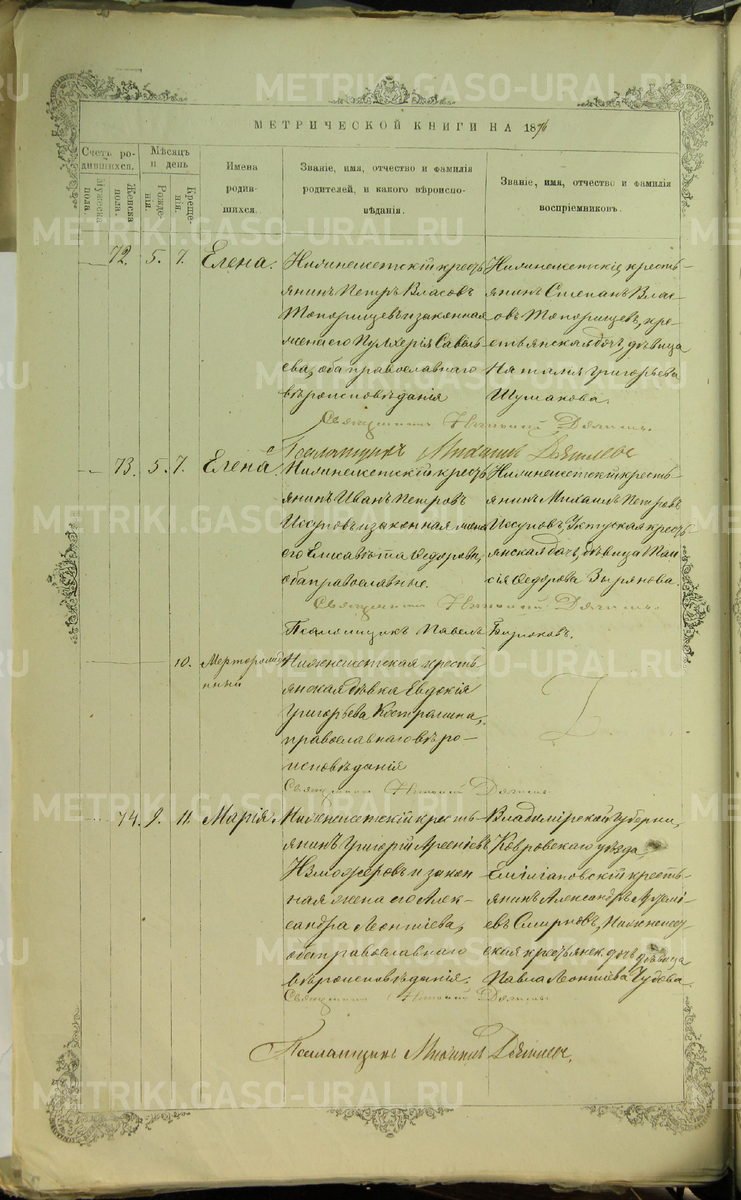 METRIKI.GASO-URAL.RU
МЕТРИЧЕСКОЙ КНИГИ НА 1876
Счетъ родившихся.
Мужеска пола.
Женска пола.
Мѣсяцъ и день
Рожденія.
Крещенія.
Имена родившихся.
Званіе, имя, отчество и фамилія родителей, и какого вѣроисповѣданія.
Званіе, имя, отчество и фамилія воспріемниковъ.
72. 5. 7. Елена.
крестьянинъ Петръ Власовъ
Топорищевъ и законная
жена его Пулхерія Савель
ева, оба православнаго
вѣроисповѣданія
кресть-
янинъ Степанъ Влас-
овъ Топорищевъ, кре-
стьянская дочь, дѣвица
Наталія Григорьева
Шумакова.
Священникъ
Псаломщикъ Михаилъ
73. 5. 7. Елена
янинъ Иванъ Петровъ
и законная жена
его Елисавета Ѳедорова,
оба православные.
кресть-
янинъ Михаилъ Петровъ
Уктуская кресть
янская дочь, дѣвица Таи
сія Ѳедорова Зырянова
Священникъ
Псаломщикъ Павелъ Бирюковъ.
10. Мерторожде
нный
Нижнеисетская кресть
янская дѣвка Евдокія
Григорьева
православнаго вѣро-
исповѣданія
Священникъ
74. 9. 11. Марія.
Нижнеисетскій кресть-
янинъ Григорій Арсеніевъ
Изможеровъ и закон
ная жена его Алек-
сандра Леонтіева,
оба православнаго
вѣроисповѣданія.
Владимірской губерніи,
Ковровскаго уѣзда,
кресть-
янинъ Александръ
евъ Смирновъ, Нижнеисет
ская крестьянск. дочь дѣвица
Павла Леонтіева Чудова.
Священникъ
Псаломщикъ Михаилъ